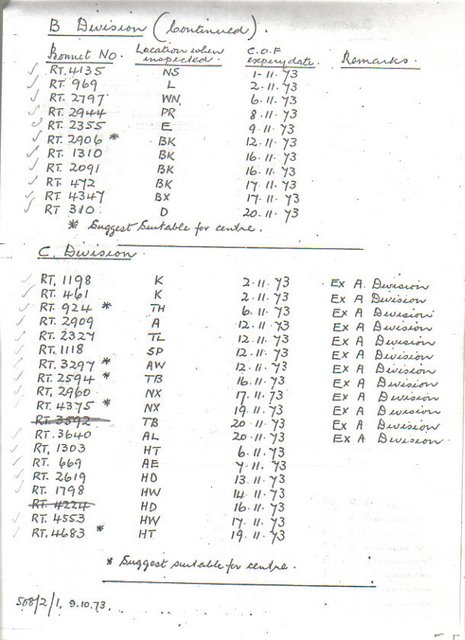 B Division (Continued).
Bonnet No. Location when inspected. C.O.F expiry date. Remarks.
RT. 4135 NS 1·11·73
RT. 969 L 2·11·73
RT. 2797 WN 6·11·73
RT. 2944 PR 8·11·73
RT. 2355 E 9·11·73
RT. 2906 * BK 12·11·73
RT. 1310 BK 16·11·73
RT. 2091 BK 16·11·73
RT. 472 BK 17·11·73
RT. 4347 BX 17·11·73
RT 310 D 20·11·73
* Suggest Suitable for centre.
C. Division
RT. 1198 K 2·11·73 Ex A. Division
RT. 461 K 2·11·73 Ex A Division
RT. 924 * TH 6·11·73 Ex A Division
RT. 2909 A 12·11·73 Ex A Division
RT. 2327 TL 12·11·73 Ex A Division
RT. 1118 SP 12·11·73 Ex A Division
RT. 3297 * AW 12·11·73 Ex A Division
RT. 2594 * TB 16·11·73 Ex A Division
RT. 2960 NX 17·11·73 Ex A Division
RT. 4375 * NX 19·11·73 Ex A Division
RT. 3592 TB 20·11·73 Ex A Division
RT. 3640 AL 20·11·73 Ex A Division
RT. 1303 HT 6·11·73
RT. 669 AE 7·11·73
RT. 2619 HD 13·11·73
RT. 1798 HW 14·11·73
RT. 4224 HD 16·11·73
RT. 4553 HW 17·11·73
RT. 4683 * HT 19·11·73
* Suggest suitable for centre.
508/2/1. 9.10.73.